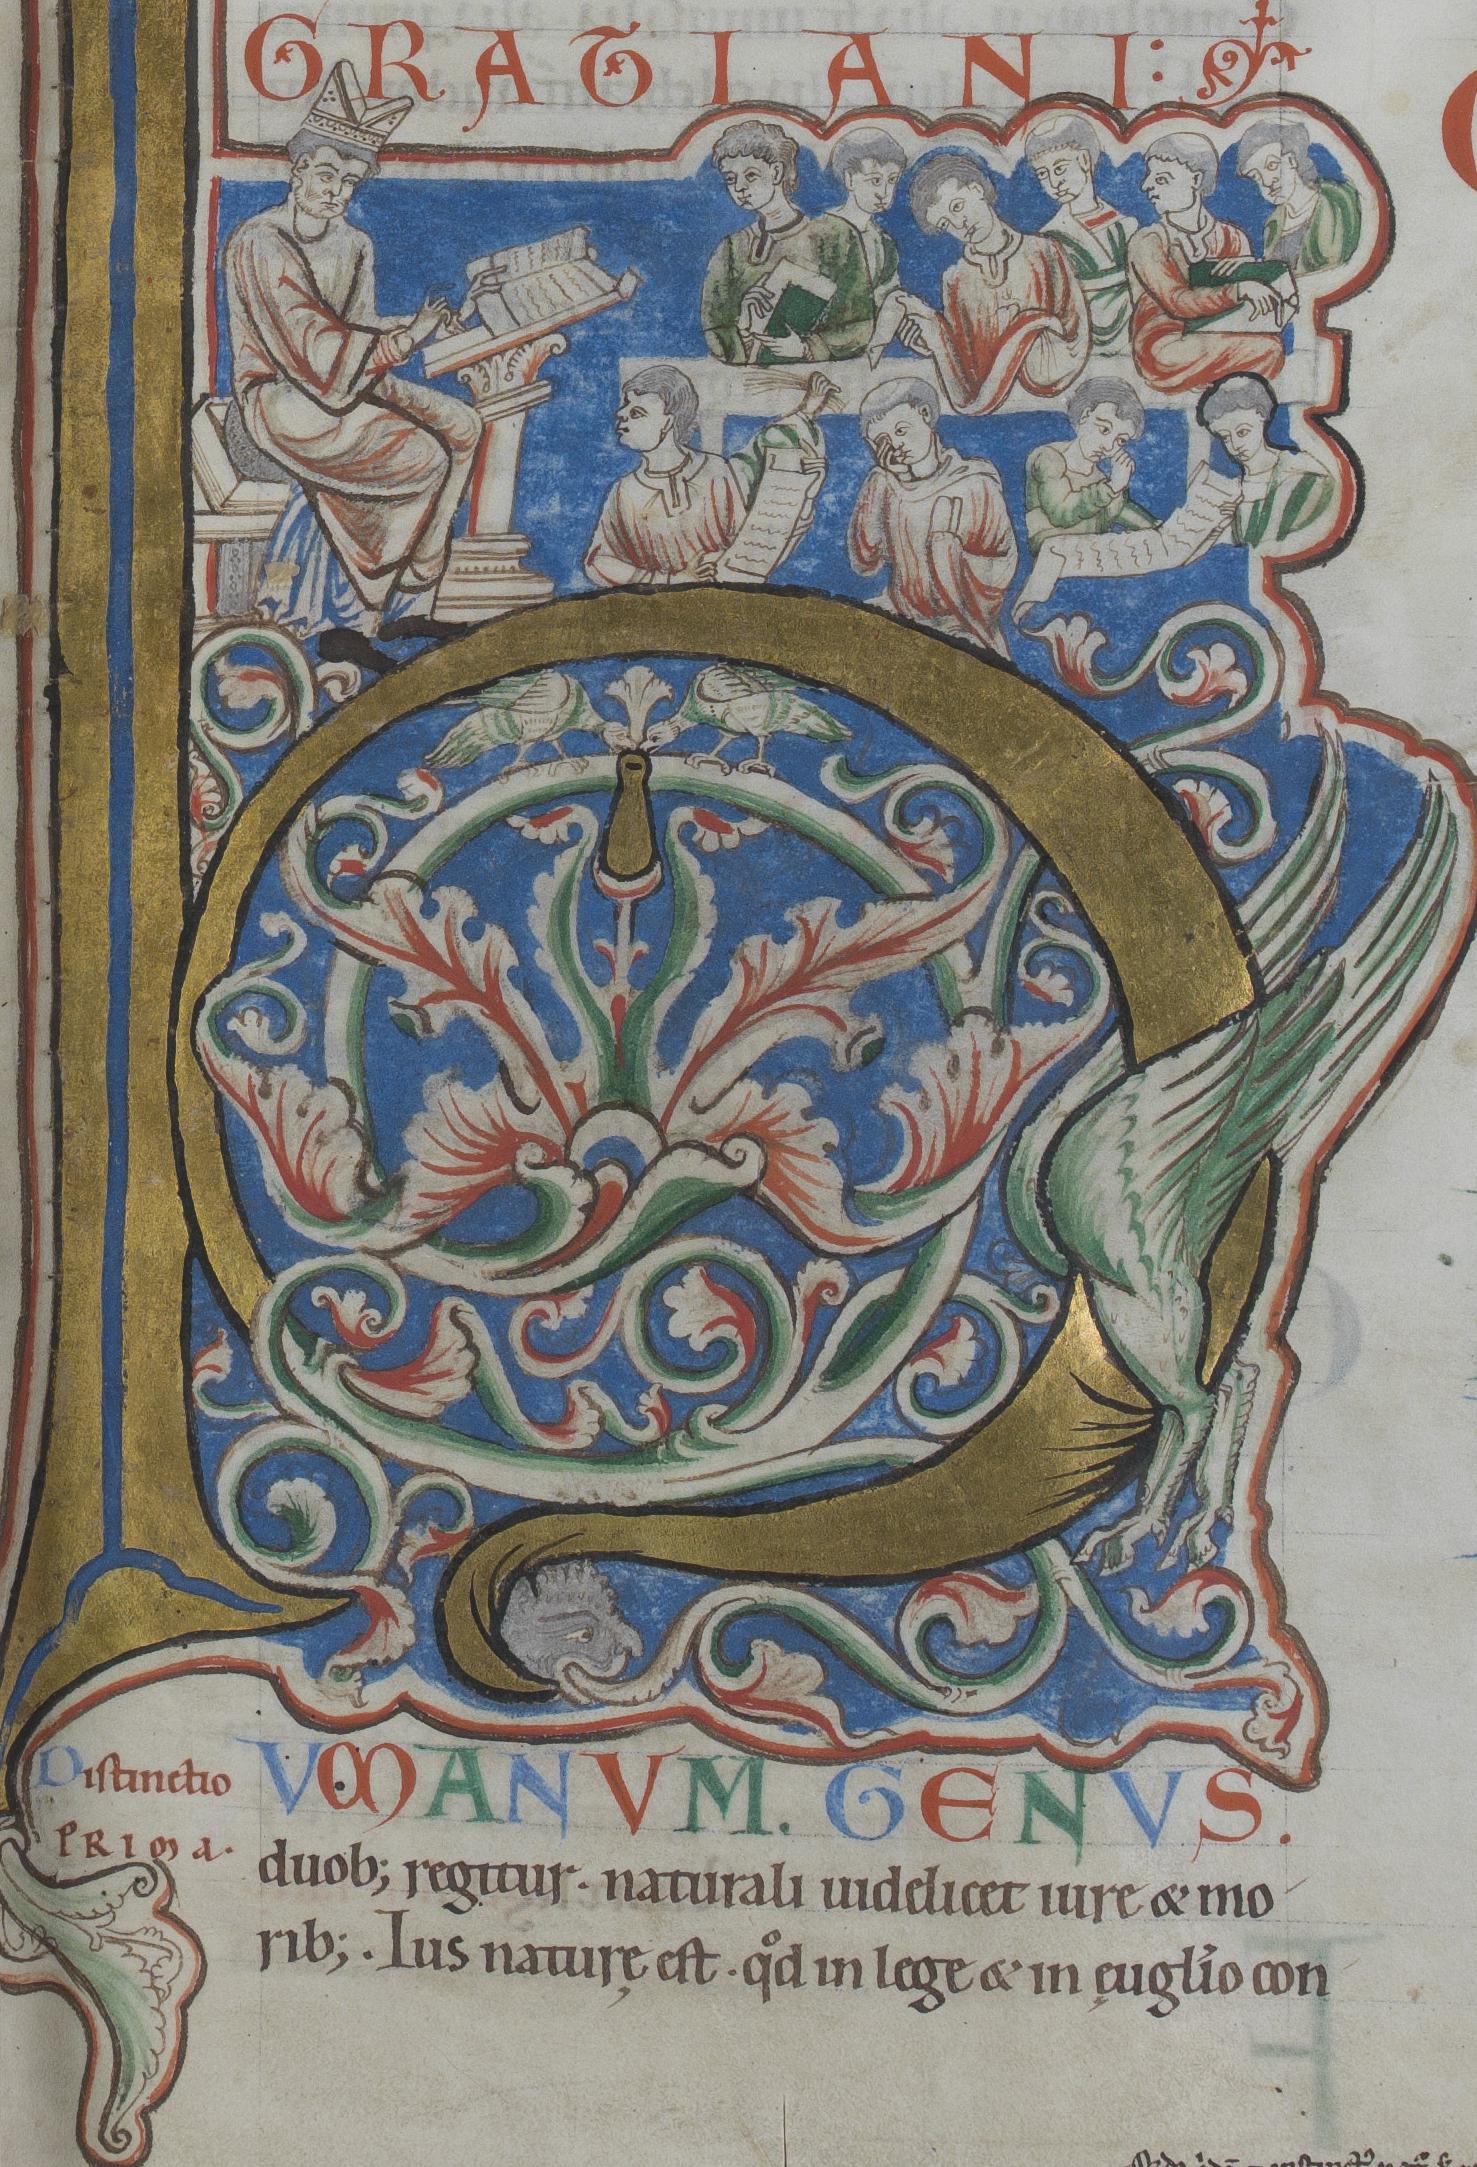 GRATIANI:
H
Distinctio
PRIMA.
VMANVM. GENVS.
duob; regitur. naturali uidelicet iure & mo
rib;. Ius naturę est. qd in lege & in ęuglio con